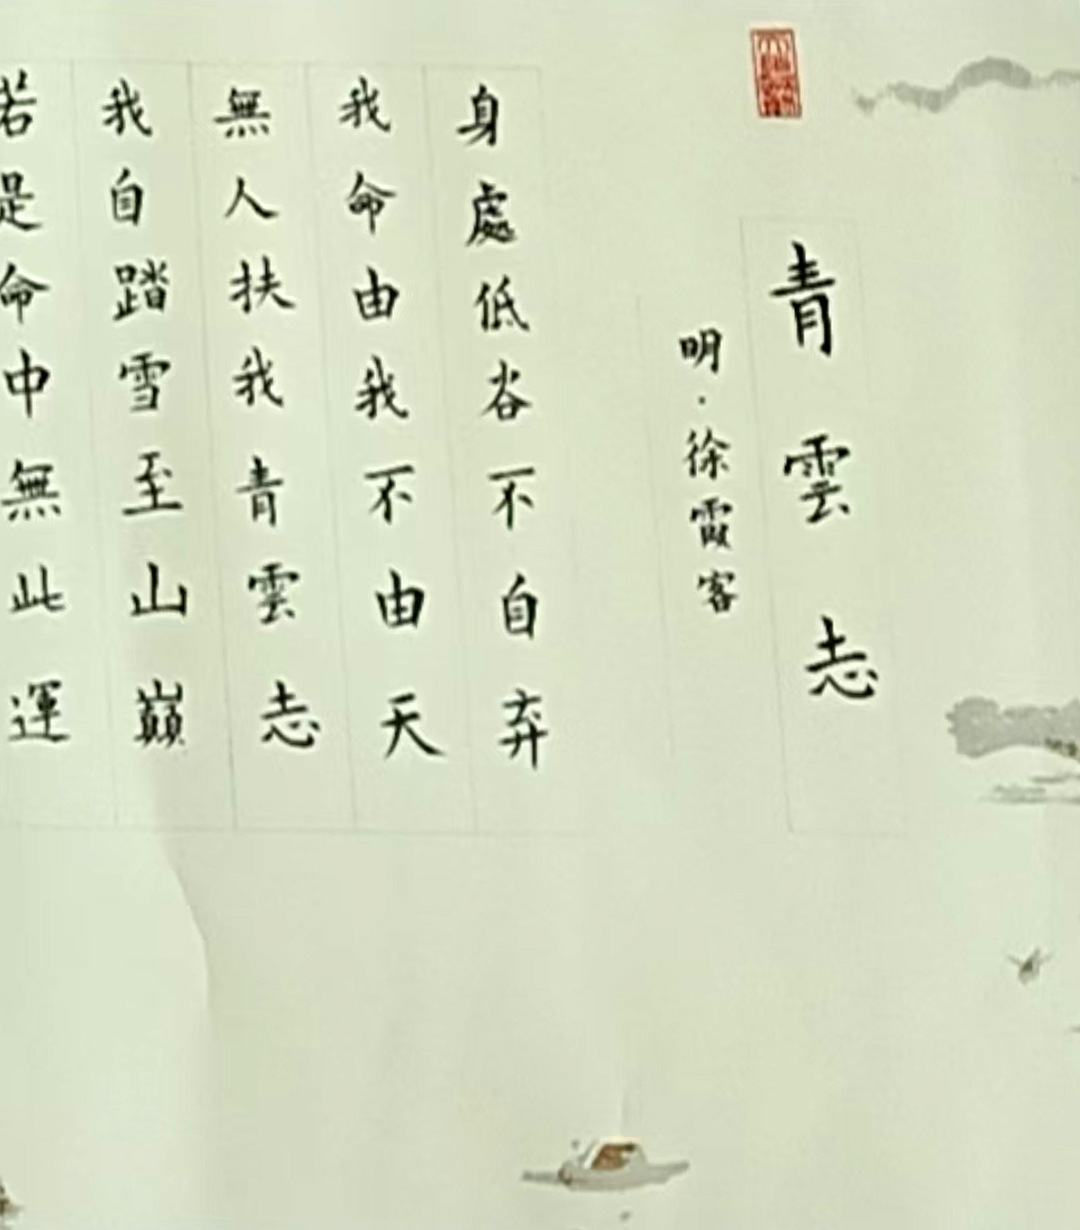 青雲志
明·徐霞客
身處低谷不自弃
我命由我不由天
無人扶我青雲志
我自踏雪至山巔
若是命中無此運